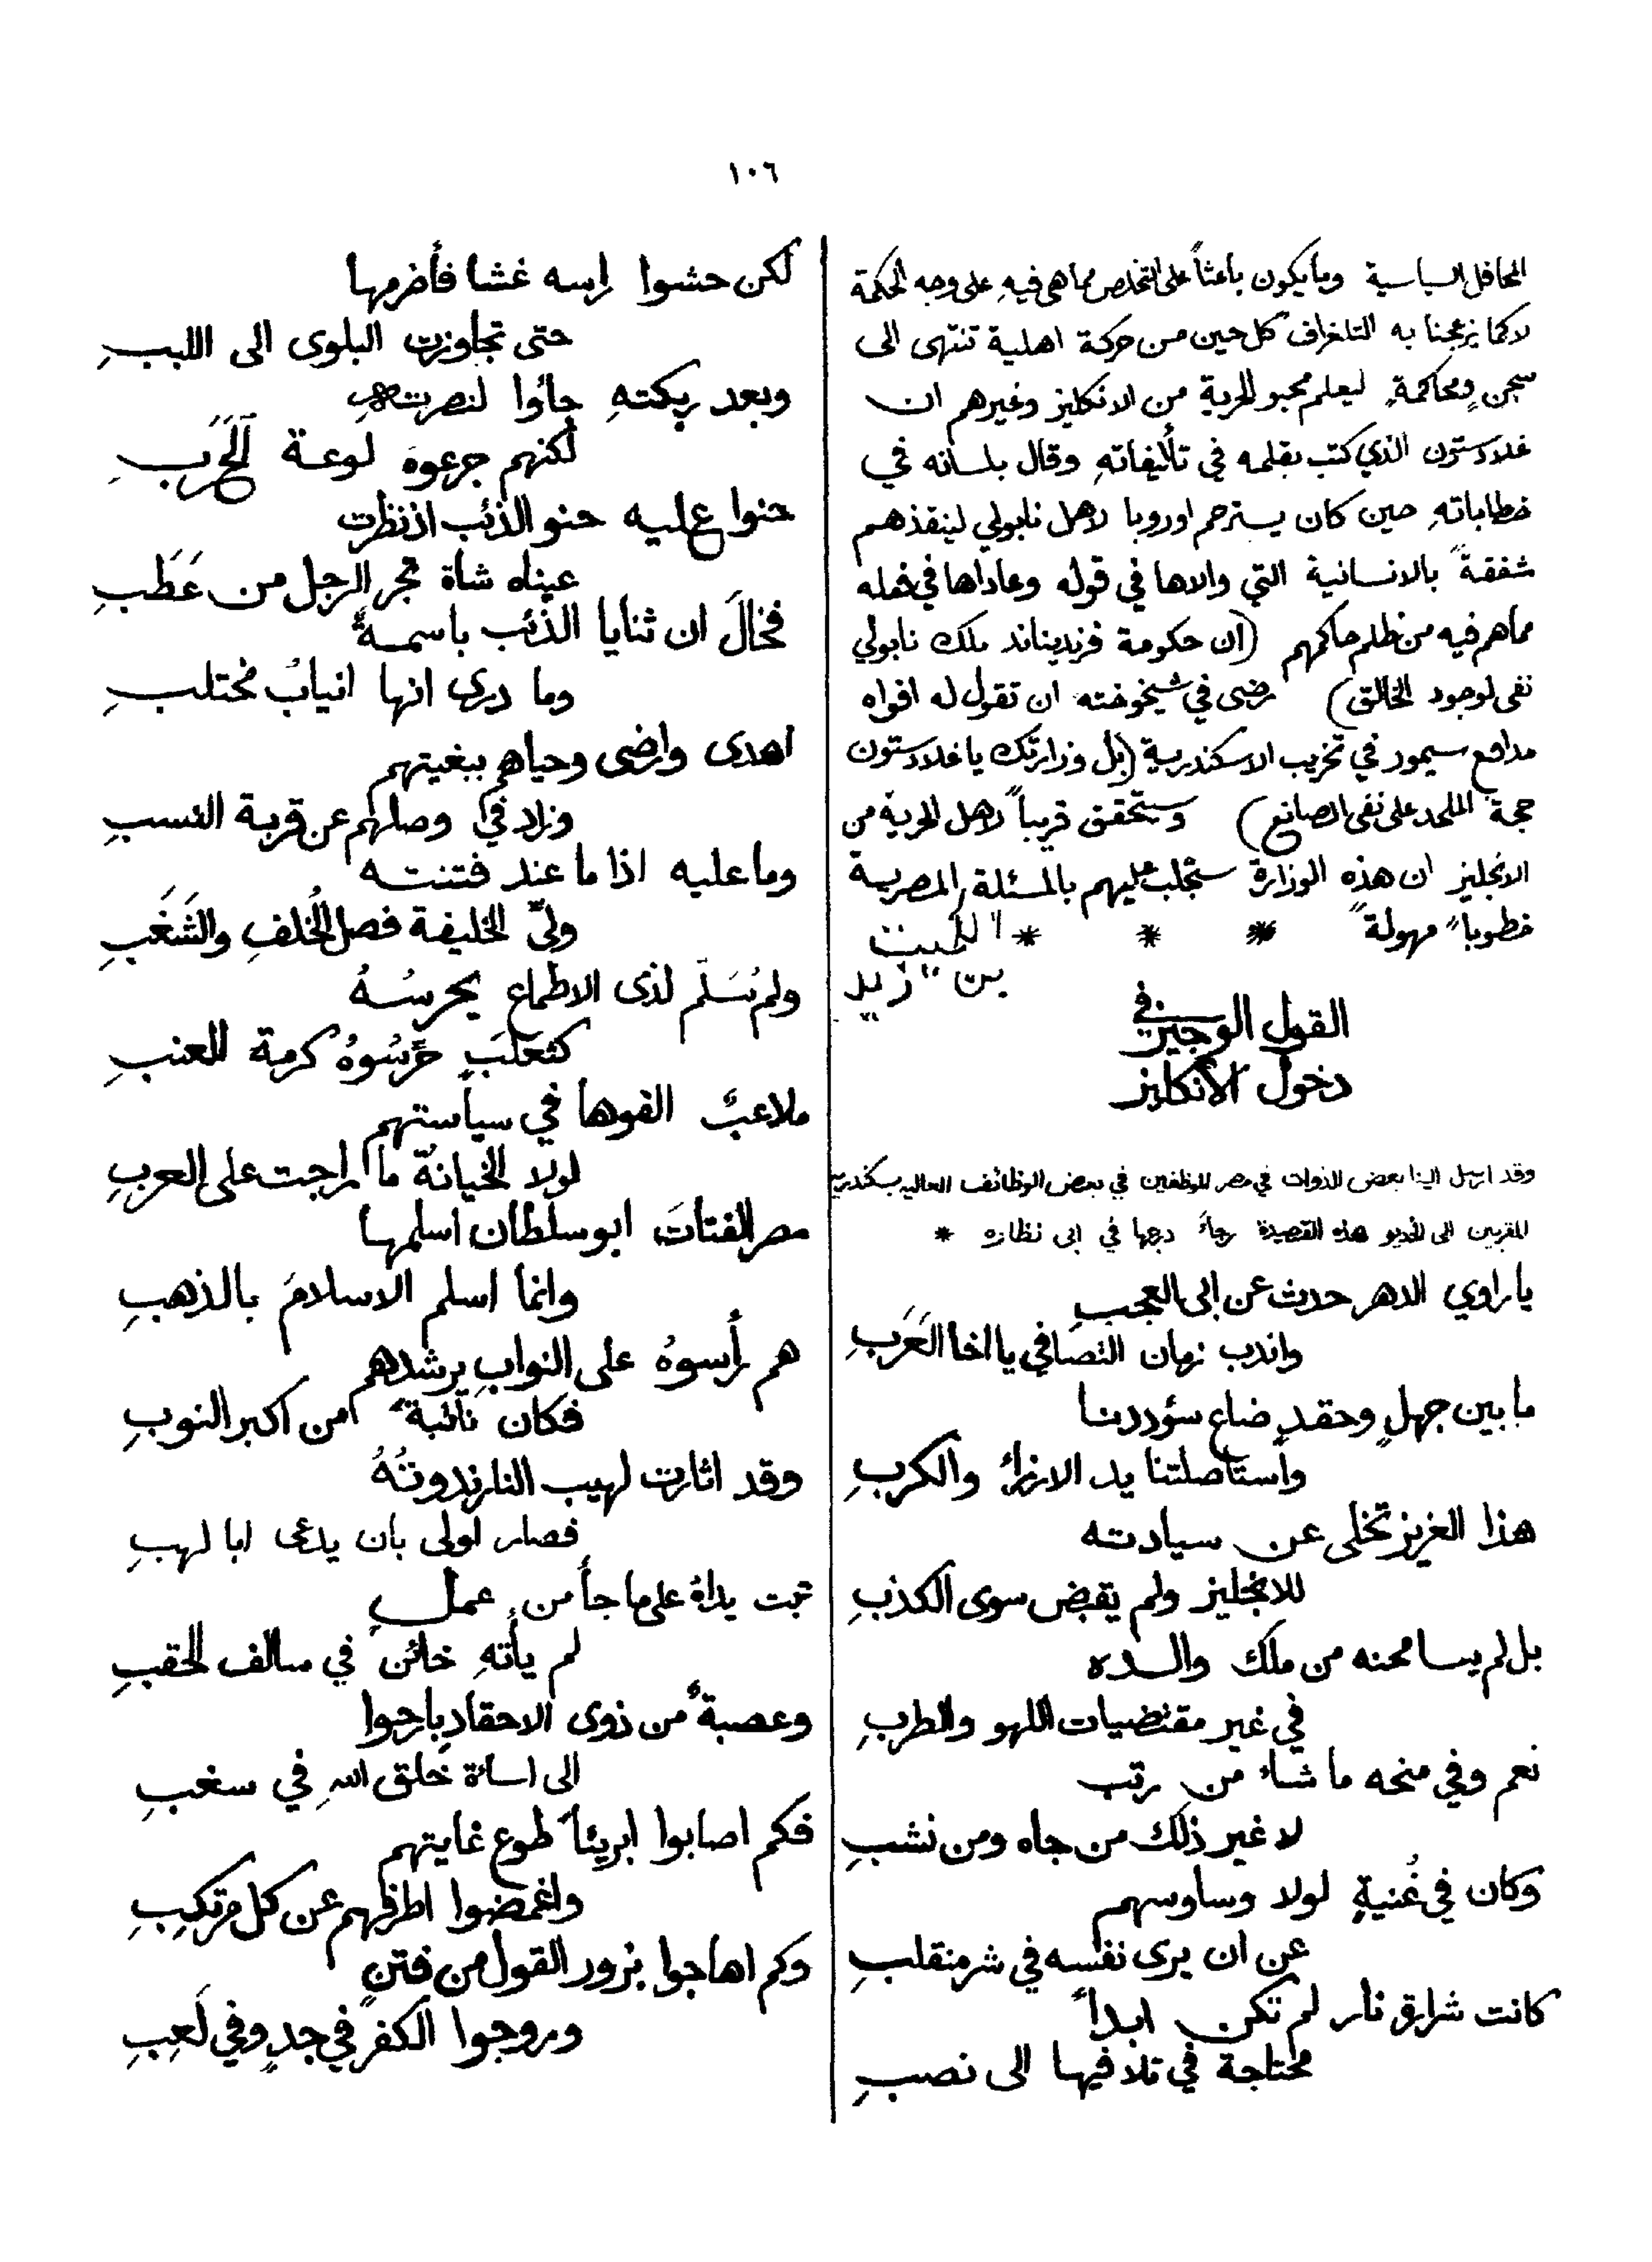 ١٠٦
المحافل السياسية وما يكون باعثاً على التخلص مما هى فيهِ على وجه الحكمة
لا كما يزعجنا به التلغراف كل حين من حركة اهلية تنتهى الى
سجنٍ ومحاكمةٍ ليعلم محبو الحرية من الانكليز وغيرهم ان
غلادستون الذي كتب بقلمه في تأليفاتهِ وقال بلسانه في
خطاباتهِ حين كان يسترحم اوروبا لاهل نابولي لينقذهم
شفقةً بالانسانية التي والاها في قوله وعاداها في فعله
مما هم فيه من ظلم حاكمهم (ان حكومة فرديناند ملك نابولي
نفى لوجود الخالق) رضى في شيخوخته ان تقول له افواه
مدافع سيمور في تخريب الاسكندرية (بل وزارتك يا غلادستون
حجة الملحد على نفى الصانع) وستحقق قريباً لاهل الحرية من
الانجليز ان هذه الوزارة ستجلب عليهم بالمسئلة المصرية
خطوباً مهولةً * * *
بن زيد
القول الوجيز في
دخول الانكليز
وقد ارسل الينا بعض الذوات في مصر الموظفين في بعض الوظائف العالية بسكندرية
المقربين الى الخديو هذه القصيدة رجاءً درجها في ابى نظاره *
يا راوي الدهر حدث عن ابى العجبِ
واندب زمان التصافي يا اخا العَرَبِ
ما بين جهلٍ وحقدٍ ضاع سؤددنا
واستاصلتنا يد الارزاء والكربِ
هذا العزيز تخلى عن سيادته
للانجليز ولم يقبض سوى الكذبِ
بل لم يسامحنه من ملك والده
في غير مقتضيات اللهو والطربِ
نعم وفي منحه ما شاء من رتب
لا غير ذلك من جاه ومن نشبِ
وكان في غُنيةٍ لولا وساوسهم
عن ان يرى نفسه في شر منقلبِ
كانت شرارق نار لم تكن ابداً
محتاجة في تلافيها الى نصبِ
لكن حشوا راسه غشا فأضرمها
حتى تجاوزت البلوى الى اللببِ
وبعد ربكتهِ جاؤا لنصرتهِ
لكنهم جرعوهُ لوعة الحَرَبِ
حنوا عليه حنو الذئب اذ نظرت
عيناه شاة تجر الرجل من عَطَبِ
فخالَ ان ثنايا الذئب باسمةٌ
وما درى انها انيابُ مختلبِ
اهدى وارضى وحياهم ببغيتهم
وزاد في وصلهم عن قربة النسبِ
وما عليه اذا ما عند فتنته
ولىّ الخليفة فصل الخُلفِ والشَغَبِ
ولم نُسَلّم لذى الاطماع يحرسُهُ
كثعلبٍ حَرَّسُوهُ كرمة العنبِ
ملاعبٌ الفوها في سياستهم
لولا الخيانةُ ما راجت على العربِ
مصر الفتاتَ ابو سلطان اسلمها
وانما اسلم الاسلامَ بالذهبِ
هم رأسوهُ على النوابِ يرشدهم
فكان نائبةً من اكبر النوبِ
وقد اثارت لهيب النار ندوتُهُ
فصار اولى بان يدعى ابا لهبِ
تبت يداهُ على ما جأ من عملٍ
لم يأتهِ خائن في سالف الحقبِ
وعصبةٌ من ذوى الاحقادِ بارحوا
الى اسائة خلق اللهِ في سغبِ
فكم اصابوا بريئاً طوع غايتهم
واغمضوا طرفهم عن كل مرتكبِ
وكم اهاجوا بزور القول من فتنٍ
وروجوا الكفر في جدٍ وفي لَعِبِ